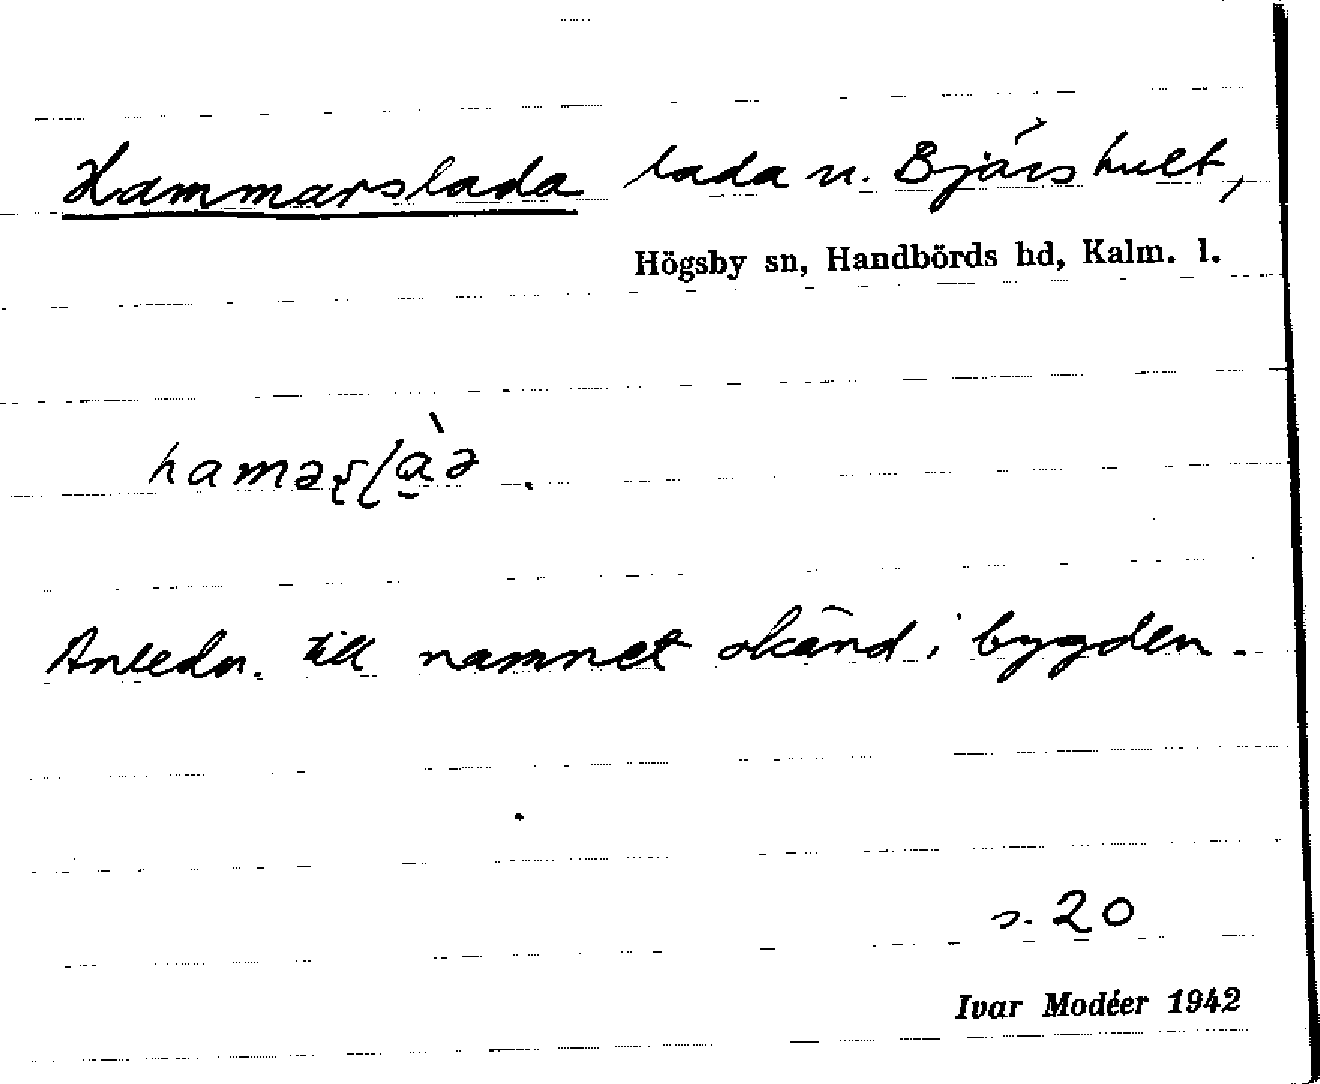 Hammarslada lada u. Bjärshult,
Högsby sn, Handbörds hd, Kalm. l.
hamərʂlὰ̠ə.
Anledn. till namnet okänd i bygden.
s. 20
Ivar Modéer 1942